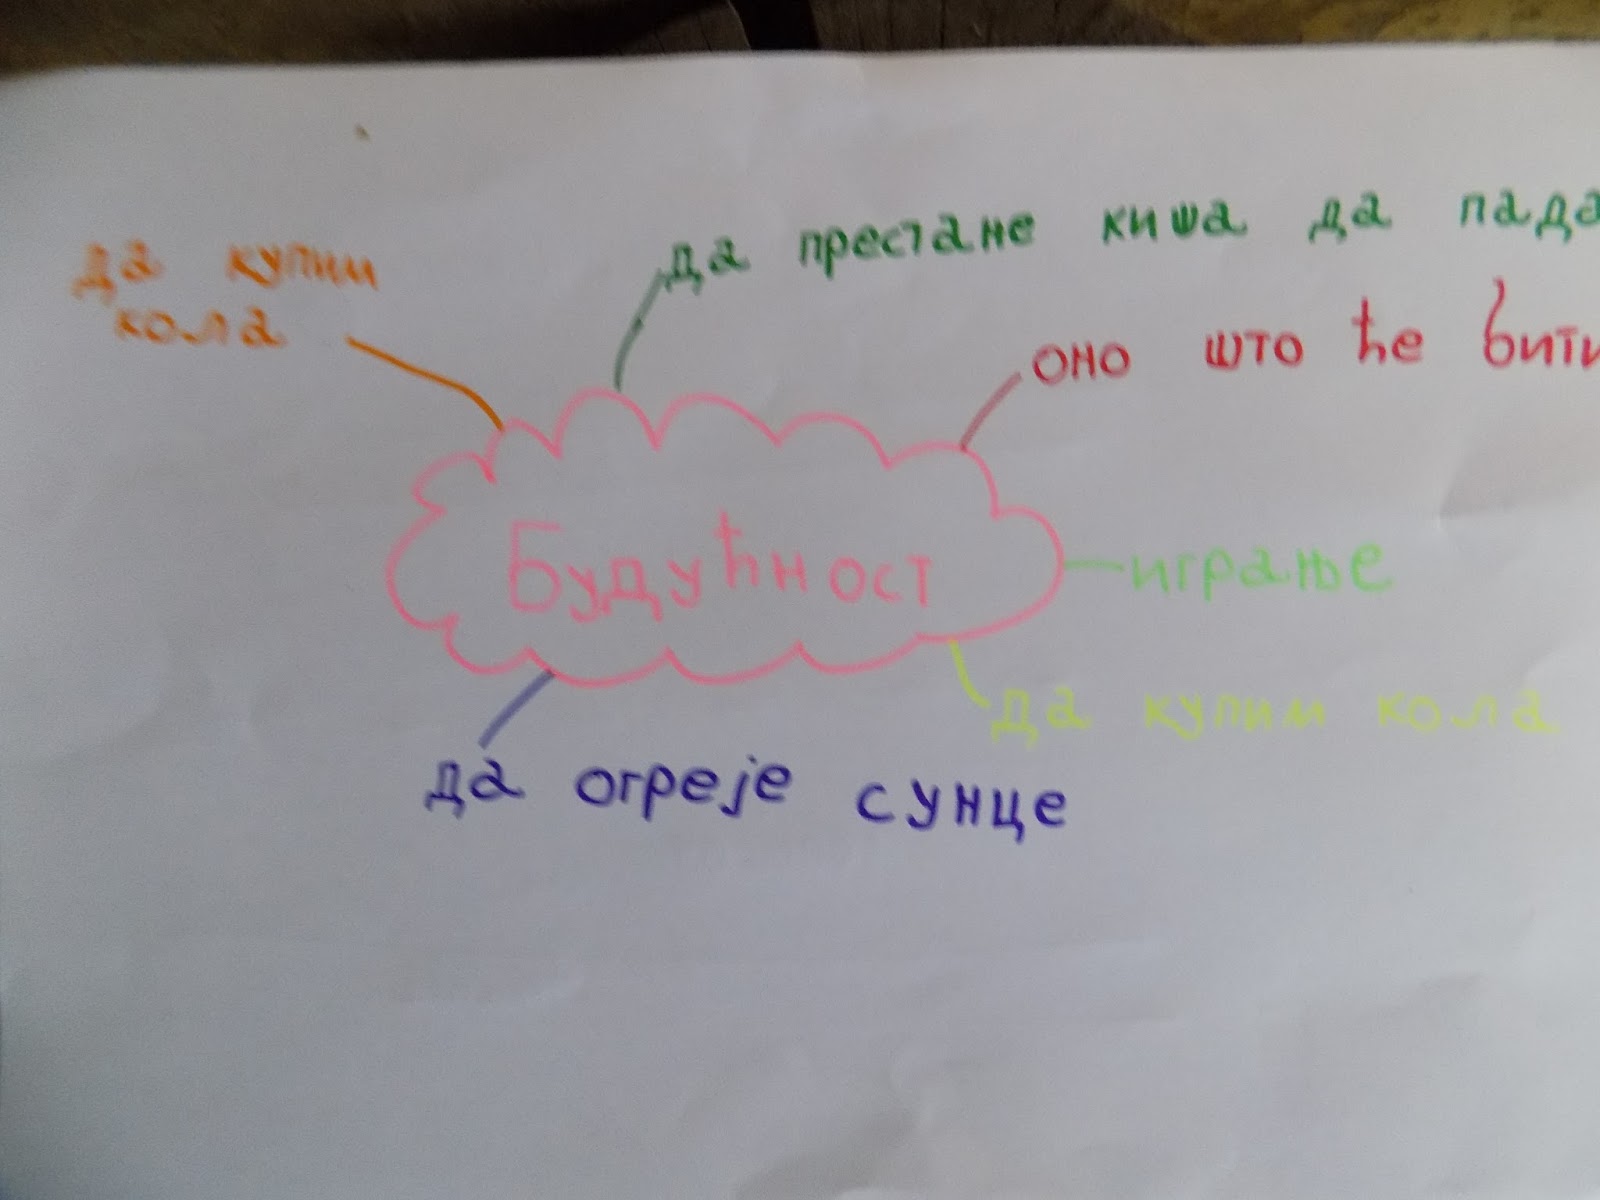 да купим
кола
да престане киша да пада
оно што ће бити
Будућност
играње
да купим кола
да огреје сунце